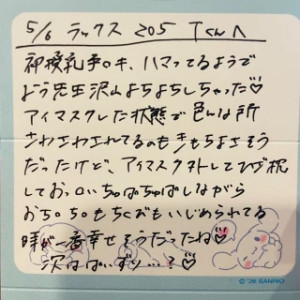 5/6 ラックス 205 Tくんへ
神授乳手コキ、ハマってるようで
よう先生沢山よちよちしちゃった♡
アイマスクした状態で色んな所
さわさわされてるのもきもちよさそう
だったけど、アイマスク外してひざ枕
しておっぱいちゅぱちゅぱしながら
おち○ちもちくびもいじめられてる
時が一番幸せそうだったね♡
次はぱいずり…？♡
©'26 SANRIO